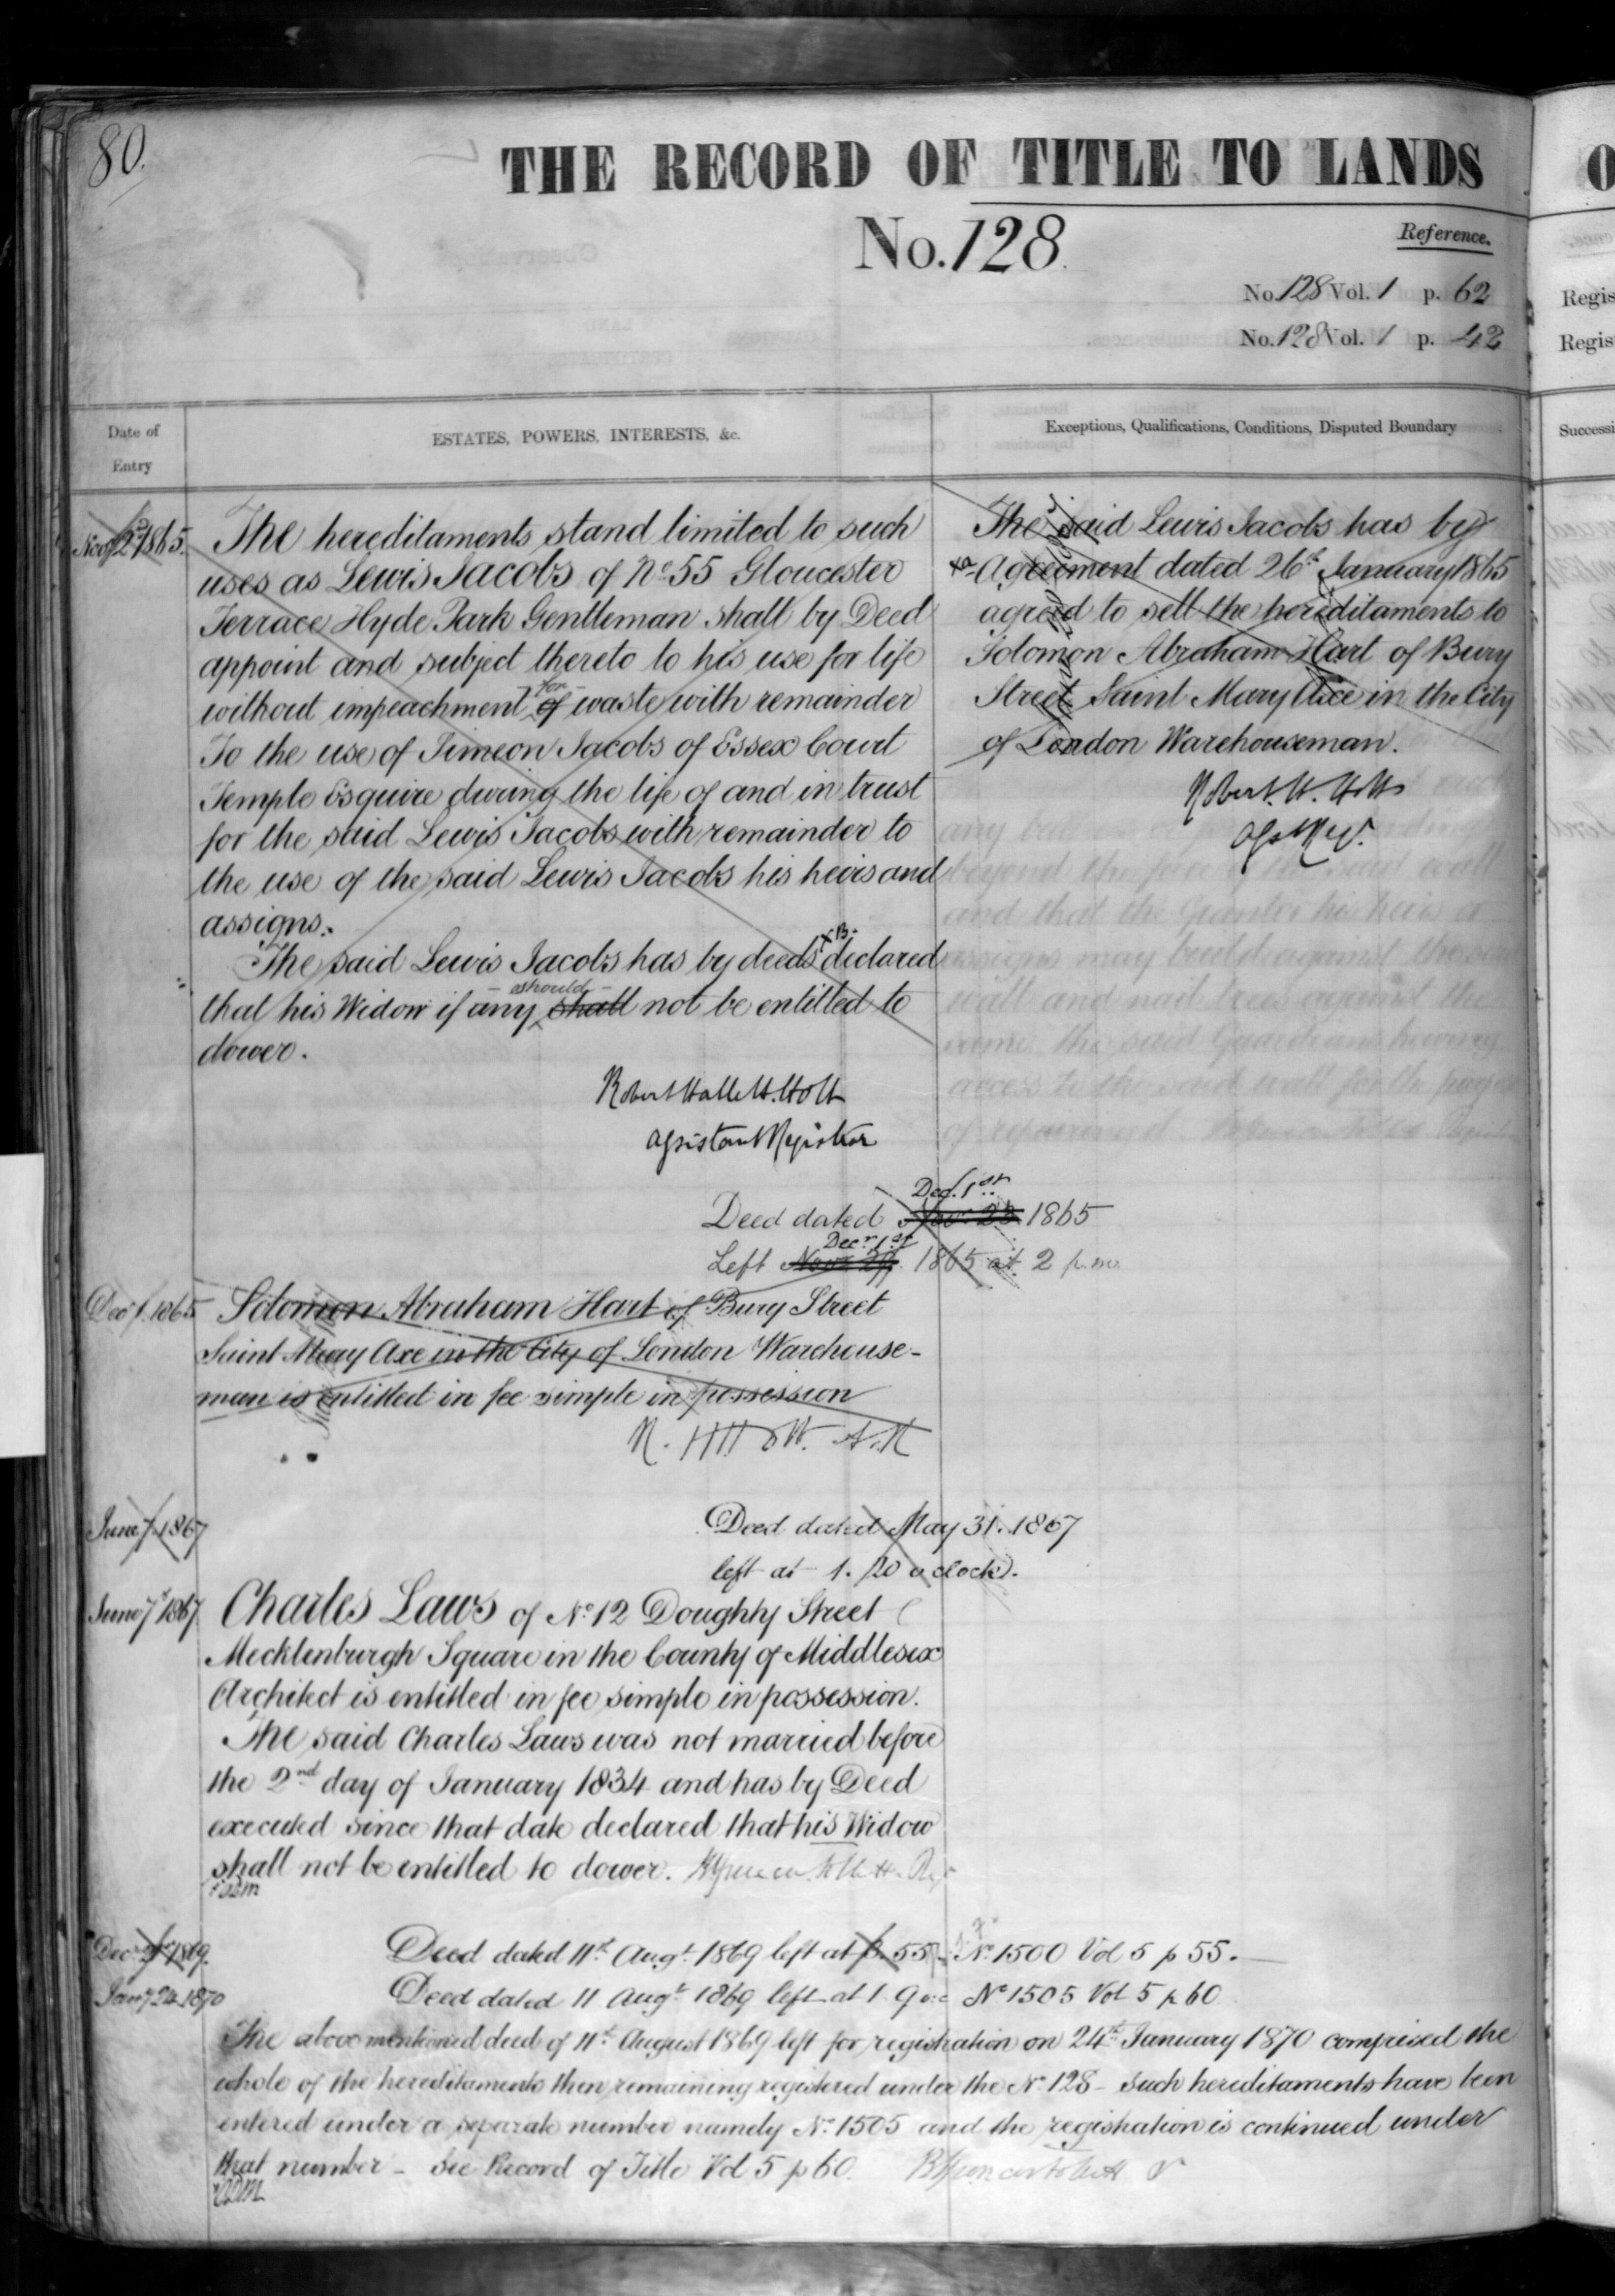 80.
THE RECORD OF TITLE TO LANDS
No. 128.
Reference.
No. 128 Vol. 1 p. 62
No. 128 Vol. 1 p. 42
Date of Entry
ESTATES, POWERS, INTERESTS, &c.
Exceptions, Qualifications, Conditions, Disputed Boundary
1865.
The hereditaments stand limited to such
uses as Lewis Jacobs of No. 55 Gloucester
Terrace Hyde Park Gentleman shall by Deed
appoint and subject thereto to his use for life
without impeachment of for waste with remainder
To the use of Simeon Jacobs of Essex Court
Temple Esquire during the life of and in trust
for the said Lewis Jacobs with remainder to
the use of the said Lewis Jacobs his heirs and
assigns.
The said Lewis Jacobs has by deeds declared
that his Widow if any shall should not be entitled to
dower.
Assistant Registrar
The said Lewis Jacobs has by
Agreement dated 26th January 1865
agreed to sell the hereditaments to
Solomon Abraham Hart of Bury
Street Saint Mary Axe in the City
of London Warehouseman.
Deed dated Dec. 1st 1865
Left Decr. 1st 1865 at 2 p.m.
Dec 1. 1865
Solomon Abraham Hart of Bury Street
Saint Mary Axe in the City of London Warehouse-
man is entitled in fee simple in possession
June 7 1867
Deed dated May 31. 1867
left at 1. 20 o'clock.
June 7th 1867
Charles Laws of No. 12 Doughty Street
Mecklenburgh Square in the County of Middlesex
Architect is entitled in fee simple in possession.
The said Charles Laws was not married before
the 2nd day of January 1834 and has by Deed
executed since that date declared that his Widow
shall not be entitled to dower.
Dec 1869.
Deed dated 11th Augt. 1869 left at 55 - No. 1500 Vol 5 p 55.
Jany 24 1870
Deed dated 11 Augt 1869 left at 1 No 1505 Vol 5 p 60
The above mentioned deed of 11th August 1869 left for registration on 24th January 1870 comprised the
whole of the hereditaments then remaining registered under the No. 128 - such hereditaments have been
entered under a separate number namely No. 1505 and the registration is continued under
that number - See Record of Title Vol 5 p 60.
Regis
Regis
Successi